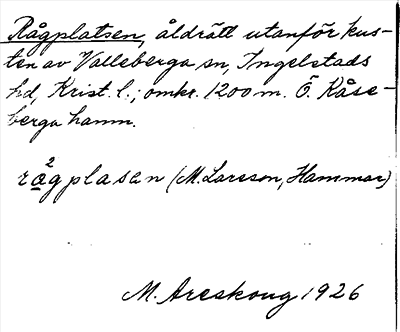 Rågplatsen, åldrätt utanför kus-
ten av Valleberga sn, Ingelstads
hd, Krist. l.; omkr. 1200 m. Ö. Kåse-
berga hamn.
rågplasɛn (M. Larsson, Hammar)
M. Areskoug 1926